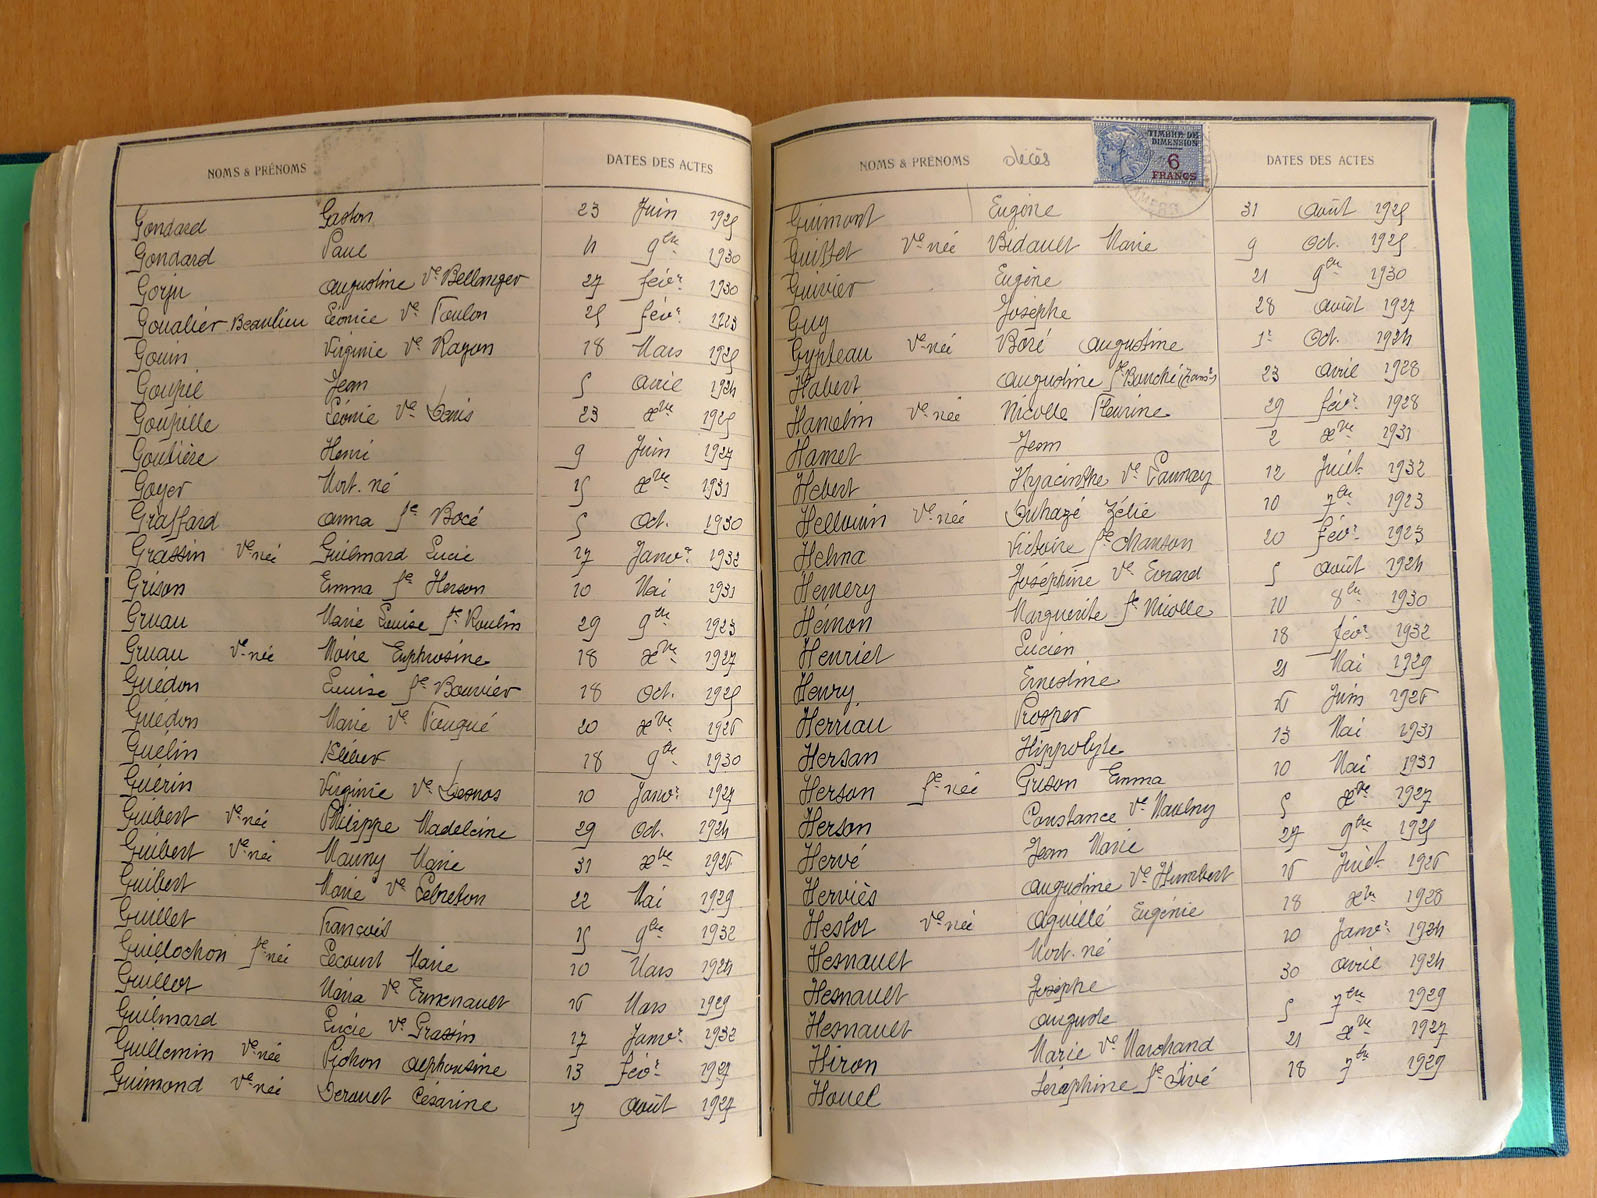 NOMS & PRÉNOMS DATES DES ACTES
Gondard Gaston 23 Juin 1925
Gondard Paul 4 9bre 1930
Gorju Augustine Ve Bellanger 27 févr 1930
Goualier-Beaulieu Léonie Ve Toulon 25 févr 1923
Gouin Virginie Ve Rayon 18 Mars 1925
Goupil Jean 5 avril 1924
Goupille Léonie Ve Denis 23 Xbre 1925
Goutière Henri 9 Juin 1927
Goyer Mort-né 15 Xbre 1931
Graffard Anna fe Bocé 5 Oct. 1930
Grassin Ve née Guilmard Lucie 17 Janvr 1932
Grison Emma fe Herson 10 Mai 1931
Gruau Marie Louise fe Roulin 29 9bre 1923
Gruau Ve née Moire Euphrosine 18 Xbre 1927
Guédon Louise fe Bouvier 18 Oct. 1925
Guédon Marie Ve Fouqué 20 Xbre 1926
Guélin Kléber 18 9bre 1930
Guérin Virginie Ve Desnos 10 Janvr 1927
Guibert Ve née Philippe Madeleine 29 Oct. 1924
Guibert Ve née Mauny Marie 31 Xbre 1926
Guibert Marie Ve Lebreton 22 Mai 1929
Guillet François 15 9bre 1932
Guillochon fe née Lecourt Marie 10 Mars 1924
Guillot Maria Ve Ermenault 16 Mars 1929
Guilmard Lucie Ve Grassin 17 Janvr 1932
Guillemin Ve née Pichon Alphonsine 13 févr 1927
Guimond Ve née Derouet Césarine 17 Août 1927
NOMS & PRÉNOMS décès DATES DES ACTES
TIMBRE DE
DIMENSION
6
FRANCS
Guimont Eugène 31 Août 1925
Guittet Ve née Bidault Marie 9 Oct. 1925
Guivier Eugène 21 9bre 1930
Guy Josèphe 28 Août 1927
Gypteau Ve née Boré Augustine 1r Oct. 1924
Habert Augustine fe Bouché 23 avril 1928
Hamelin Ve née Nicolle Fleurine 29 févr 1928
Hamet Jean 2 Xbre 1931
Hebert Hyacinthe Ve Launay 12 Juilt 1932
Hellouin Ve née Duhazé Zélie 10 7bre 1923
Helma Victoire fe Manson 20 févr 1923
Hemery Joséphine Ve Evrard 5 Août 1924
Hémon Marguerite fe Nicolle 10 8bre 1930
Henriet Lucien 18 févr 1932
Henry Ernestine 21 Mai 1929
Herriau Prosper 16 Juin 1926
Hersan Hippolyte 13 Mai 1931
Herson fe née Grison Emma 10 Mai 1931
Herson Constance Ve Maulny 5 Xbre 1927
Hervé Jean Marie 27 9bre 1925
Herviès Augustine Ve Humbert 16 Juilt 1926
Heslot Ve née Aguillé Eugénie 18 Xbre 1928
Hesnault Mort-né 10 Janvr 1924
Hesnault Josèphe 30 avril 1924
Hesnault Auguste 5 7bre 1929
Hiron Marie Ve Marchand 21 Xbre 1927
Houel Séraphine fe Sivé 18 7bre 1929